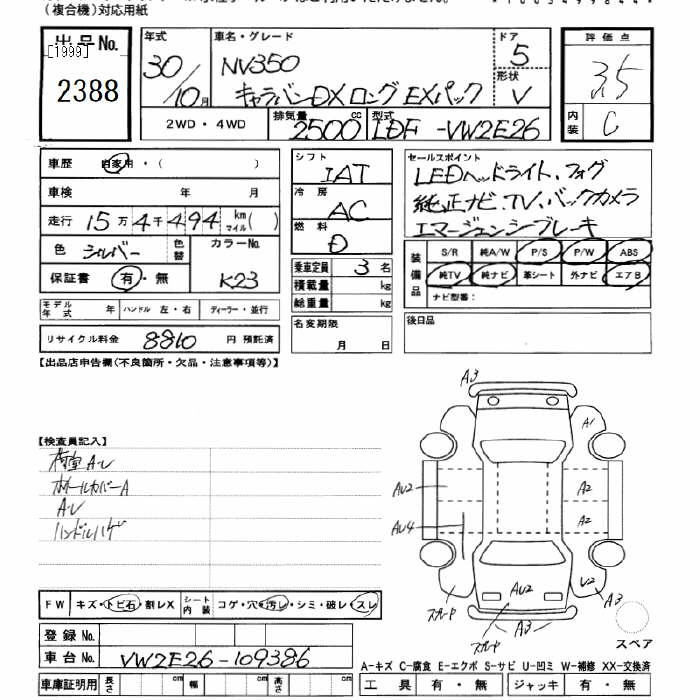 (複合機)対応用紙
出品No.
[1999]
2388
年式
30/10月
車名・グレード
NV350
キャラバンDXロングEXパック
ドア
5
形状
V
評価点
3.5
内装
C
2WD・4WD
排気量
2500cc
型式
LDF-VW2E26
車歴 自家用・( )
車検 年 月
走行 15万4千494 km マイル( )
色 シルバー 色替
カラーNo.
K23
保証書 有・無
モデル年式 年 ハンドル 左・右 ディーラー・並行
リサイクル料金 8810 円 預託済
シフト
IAT
冷房
AC
燃料
D
乗車定員 3名
積載量 kg
総重量 kg
名変期限
月 日
セールスポイント
LEDヘッドライト、フォグ
純正ナビ、TV、バックカメラ
エマージェンシーブレーキ
装備品
S/R 純A/W P/S P/W ABS
純TV 純ナビ 革シート 外ナビ エアB
ナビ型番:
後日品
【出品店申告欄(不良箇所・欠品・注意事項等)】
【検査員記入】
荷室AU
ホイールカバーA
AU
ハンドルハゲ
A3
A1
AU2
A2
AU4
A2
U2
A3
AU2
スペア
A3
FW キズ・トビ石・割レX シート内装 コゲ・穴・汚レ・シミ・破レ・スレ
登録No.
車台No. VW2E26-109386
A-キズ C-腐食 E-エクボ S-サビ U-凹ミ W-補修 XX-交換済
車庫証明用 長さ cm 幅 cm 高さ cm
工具 有・無 ジャッキ 有・無